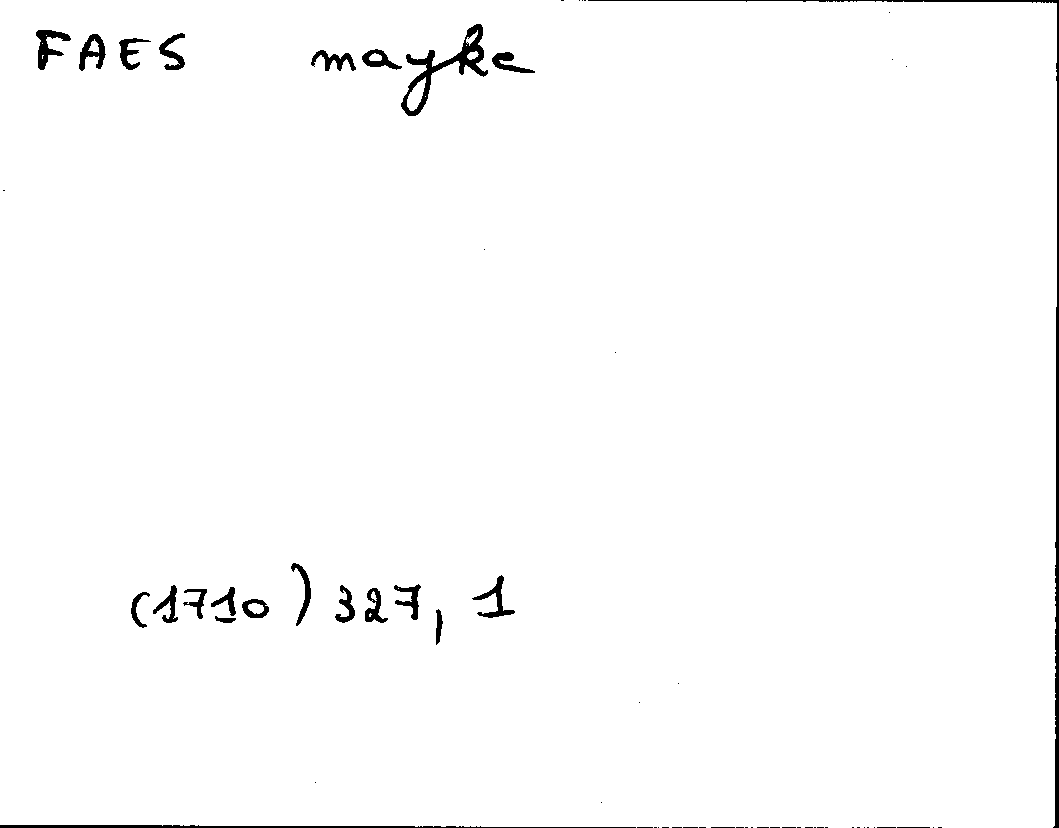 FAES mayke
(1710) 327, 1